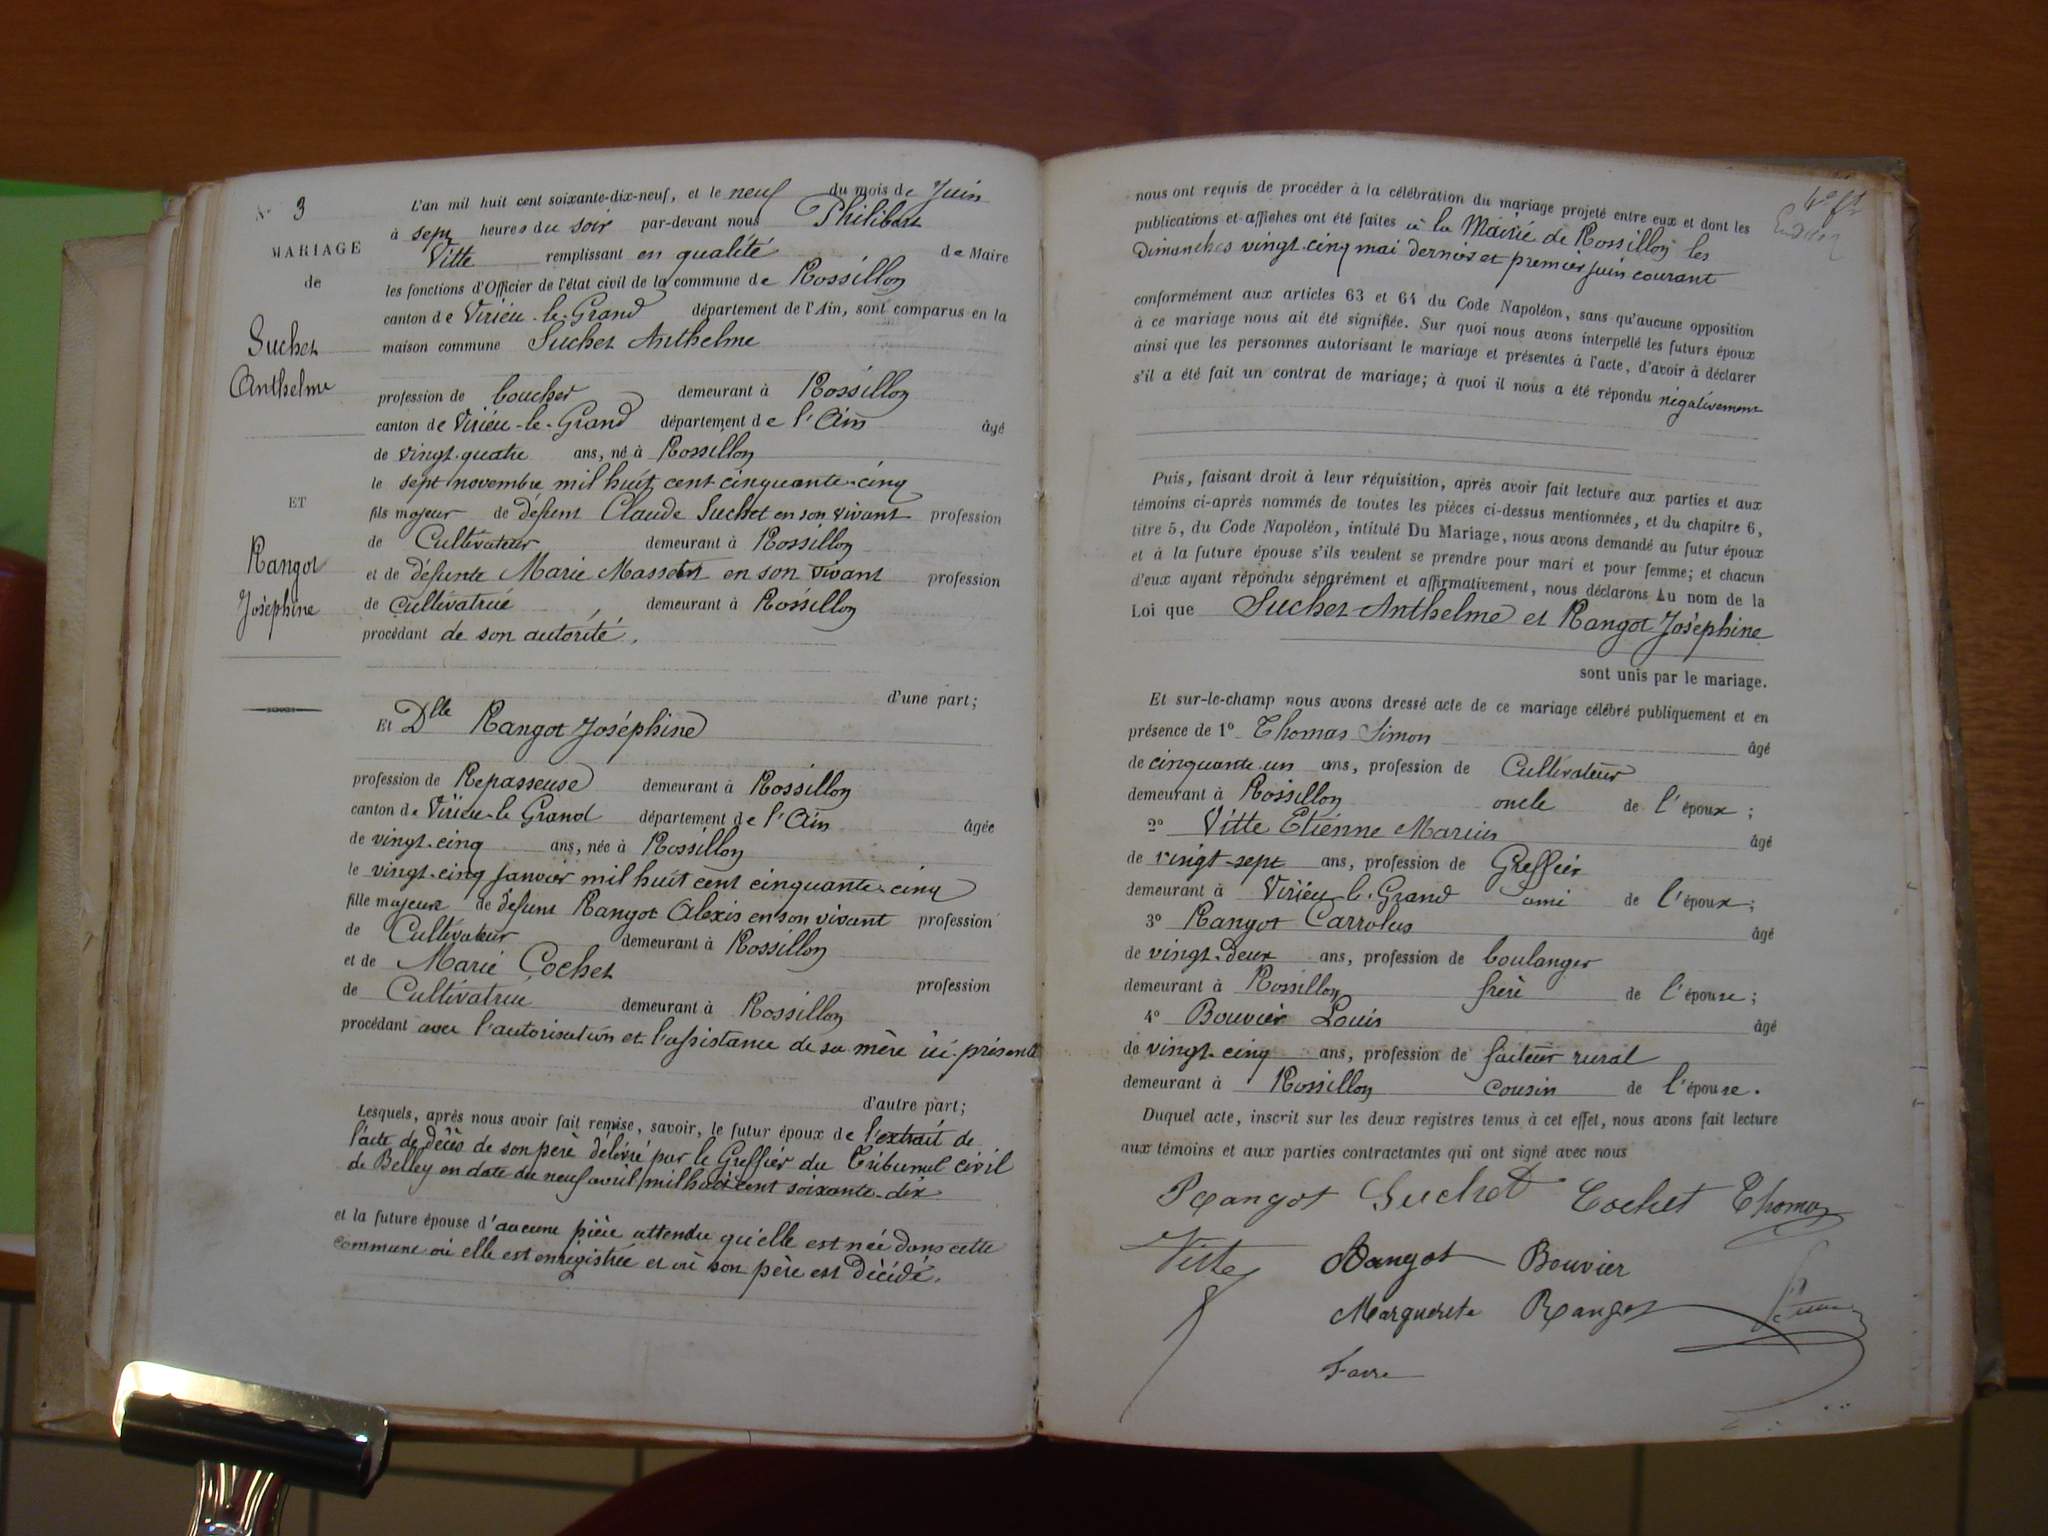 N° 3
MARIAGE
de
Suchet
Anthelme
ET
Rangot
Joséphine
L'an mil huit cent soixante-dix-neuf, et le neuf du mois de Juin
à sept heures du soir par-devant nous Philibert
Vitte remplissant en qualité de Maire
les fonctions d'Officier de l'état civil de la commune de Rossillon
canton de Virieu-le-Grand département de l'Ain, sont comparus en la
maison commune Suchet Anthelme
profession de boucher demeurant à Rossillon
canton de Virieu-le-Grand département de l'Ain âgé
de vingt-quatre ans, né à Rossillon
le sept novembre mil huit cent cinquante-cinq
fils majeur de défunt Claude Suchet en son vivant profession
de Cultivateur demeurant à Rossillon
et de défunte Marie en son vivant profession
de cultivatrice demeurant à Rossillon
procédant de son autorité.
d'une part;
Et Dlle Rangot Joséphine
profession de Repasseuse demeurant à Rossillon
canton de Virieu-le Grand département de l'Ain âgée
de vingt-cinq ans, née à Rossillon
le vingt-cinq janvier mil huit cent cinquante-cinq
fille majeure de défunt Rangot Alexis en son vivant profession
de Cultivateur demeurant à Rossillon
et de Marie Cochet profession
de Cultivatrice demeurant à Rossillon
procédant avec l'autorisation et l'assistance de sa mère ici présente
d'autre part;
Lesquels, après nous avoir fait remise, savoir, le futur époux de l'extrait de
l'acte de décès de son père délivré par le Greffier du Tribunal civil
de Belley en date du neuf avril mil huit cent soixante-dix
et la future épouse d'aucune pièce attendu qu'elle est née dans cette
commune où elle est enregistrée et où son père est décédé.
nous ont requis de procéder à la célébration du mariage projeté entre eux et dont les
publications et affiches ont été faites à la Mairie de Rossillon les
Dimanches vingt-cinq mai dernier et premier juin courant
conformément aux articles 63 et 64 du Code Napoléon, sans qu'aucune opposition
à ce mariage nous ait été signifiée. Sur quoi nous avons interpellé les futurs époux
ainsi que les personnes autorisant le mariage et présentes à l'acte, d'avoir à déclarer
s'il a été fait un contrat de mariage; à quoi il nous a été répondu négativement
Puis, faisant droit à leur réquisition, après avoir fait lecture aux parties et aux
témoins ci-après nommés de toutes les pièces ci-dessus mentionnées, et du chapitre 6,
titre 5, du Code Napoléon, intitulé Du Mariage, nous avons demandé au futur époux
et à la future épouse s'ils veulent se prendre pour mari et pour femme; et chacun
d'eux ayant répondu séparément et affirmativement, nous déclarons Au nom de la
Loi que Suchet Anthelme et Rangot Joséphine
sont unis par le mariage.
Et sur-le-champ nous avons dressé acte de ce mariage célébré publiquement et en
présence de 1° Thomas Simon âgé
de cinquante-un ans, profession de Cultivateur
demeurant à Rossillon oncle de l'époux;
2° Vitte Etienne Marius âgé
de vingt-sept ans, profession de Greffier
demeurant à Virieu-le-Grand ami de l'époux;
3° Rangot Carrolus âgé
de vingt-deux ans, profession de boulanger
demeurant à Rossillon frère de l'épouse;
4° Bouvier Louis âgé
de vingt-cinq ans, profession de facteur rural
demeurant à Rossillon cousin de l'épouse.
Duquel acte, inscrit sur les deux registres tenus à cet effet, nous avons fait lecture
aux témoins et aux parties contractantes qui ont signé avec nous
Rangot Suchet Cochet Thomas
Vitte Rangot Bouvier
Marguerite Rangot
Favre